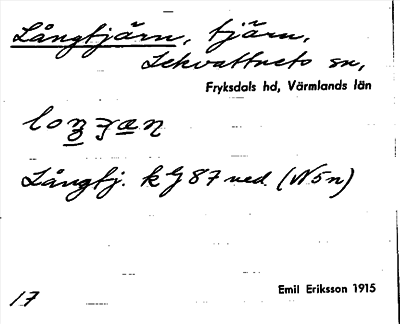 Långtjärn, tjärn,
Lekvattnets sn,
Fryksdals hd, Värmlands län
Långtj. k 87 ved. (N5n)
Emil Eriksson 1915
17